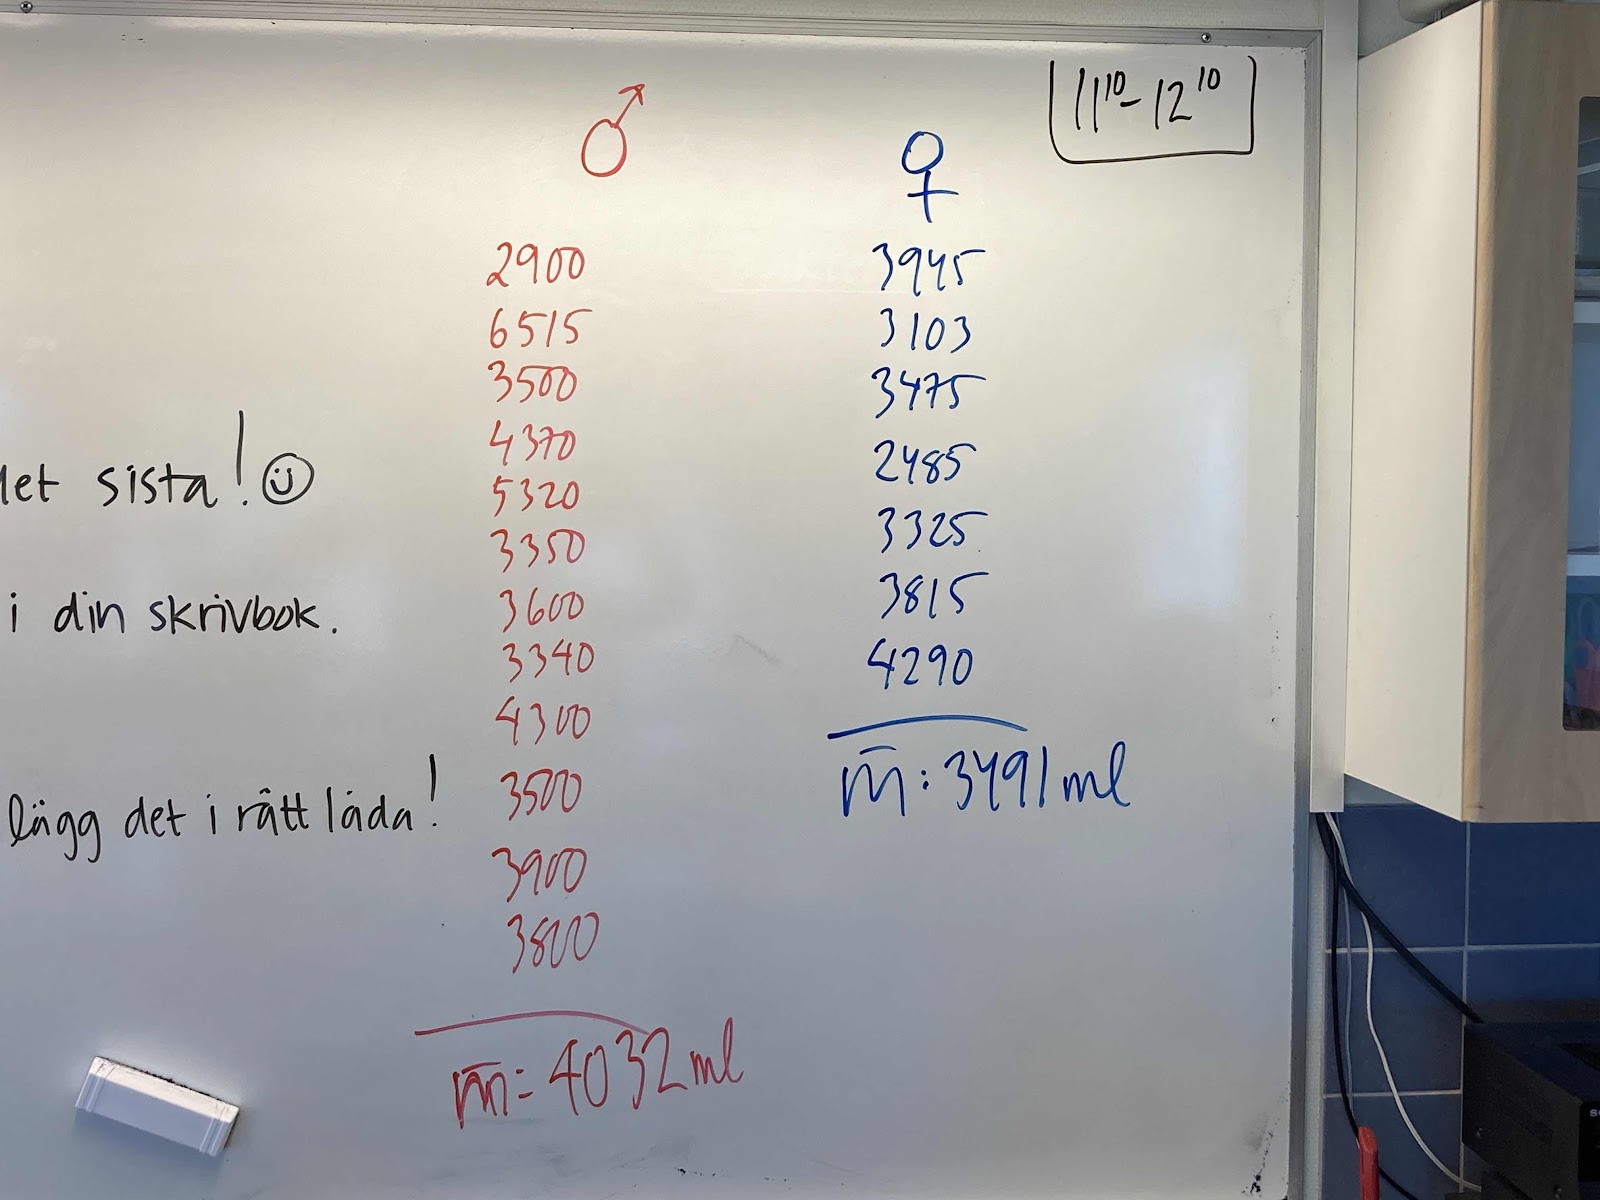 11¹⁰-12¹⁰
♂
2900
6515
3500
4370
5320
3350
3600
3340
4300
3500
3900
3800
m̄: 4032 ml
♀
3945
3103
3475
2485
3325
3815
4290
m̄: 3491 ml
det sista! ☺
i din skrivbok.
lägg det i rätt låda!